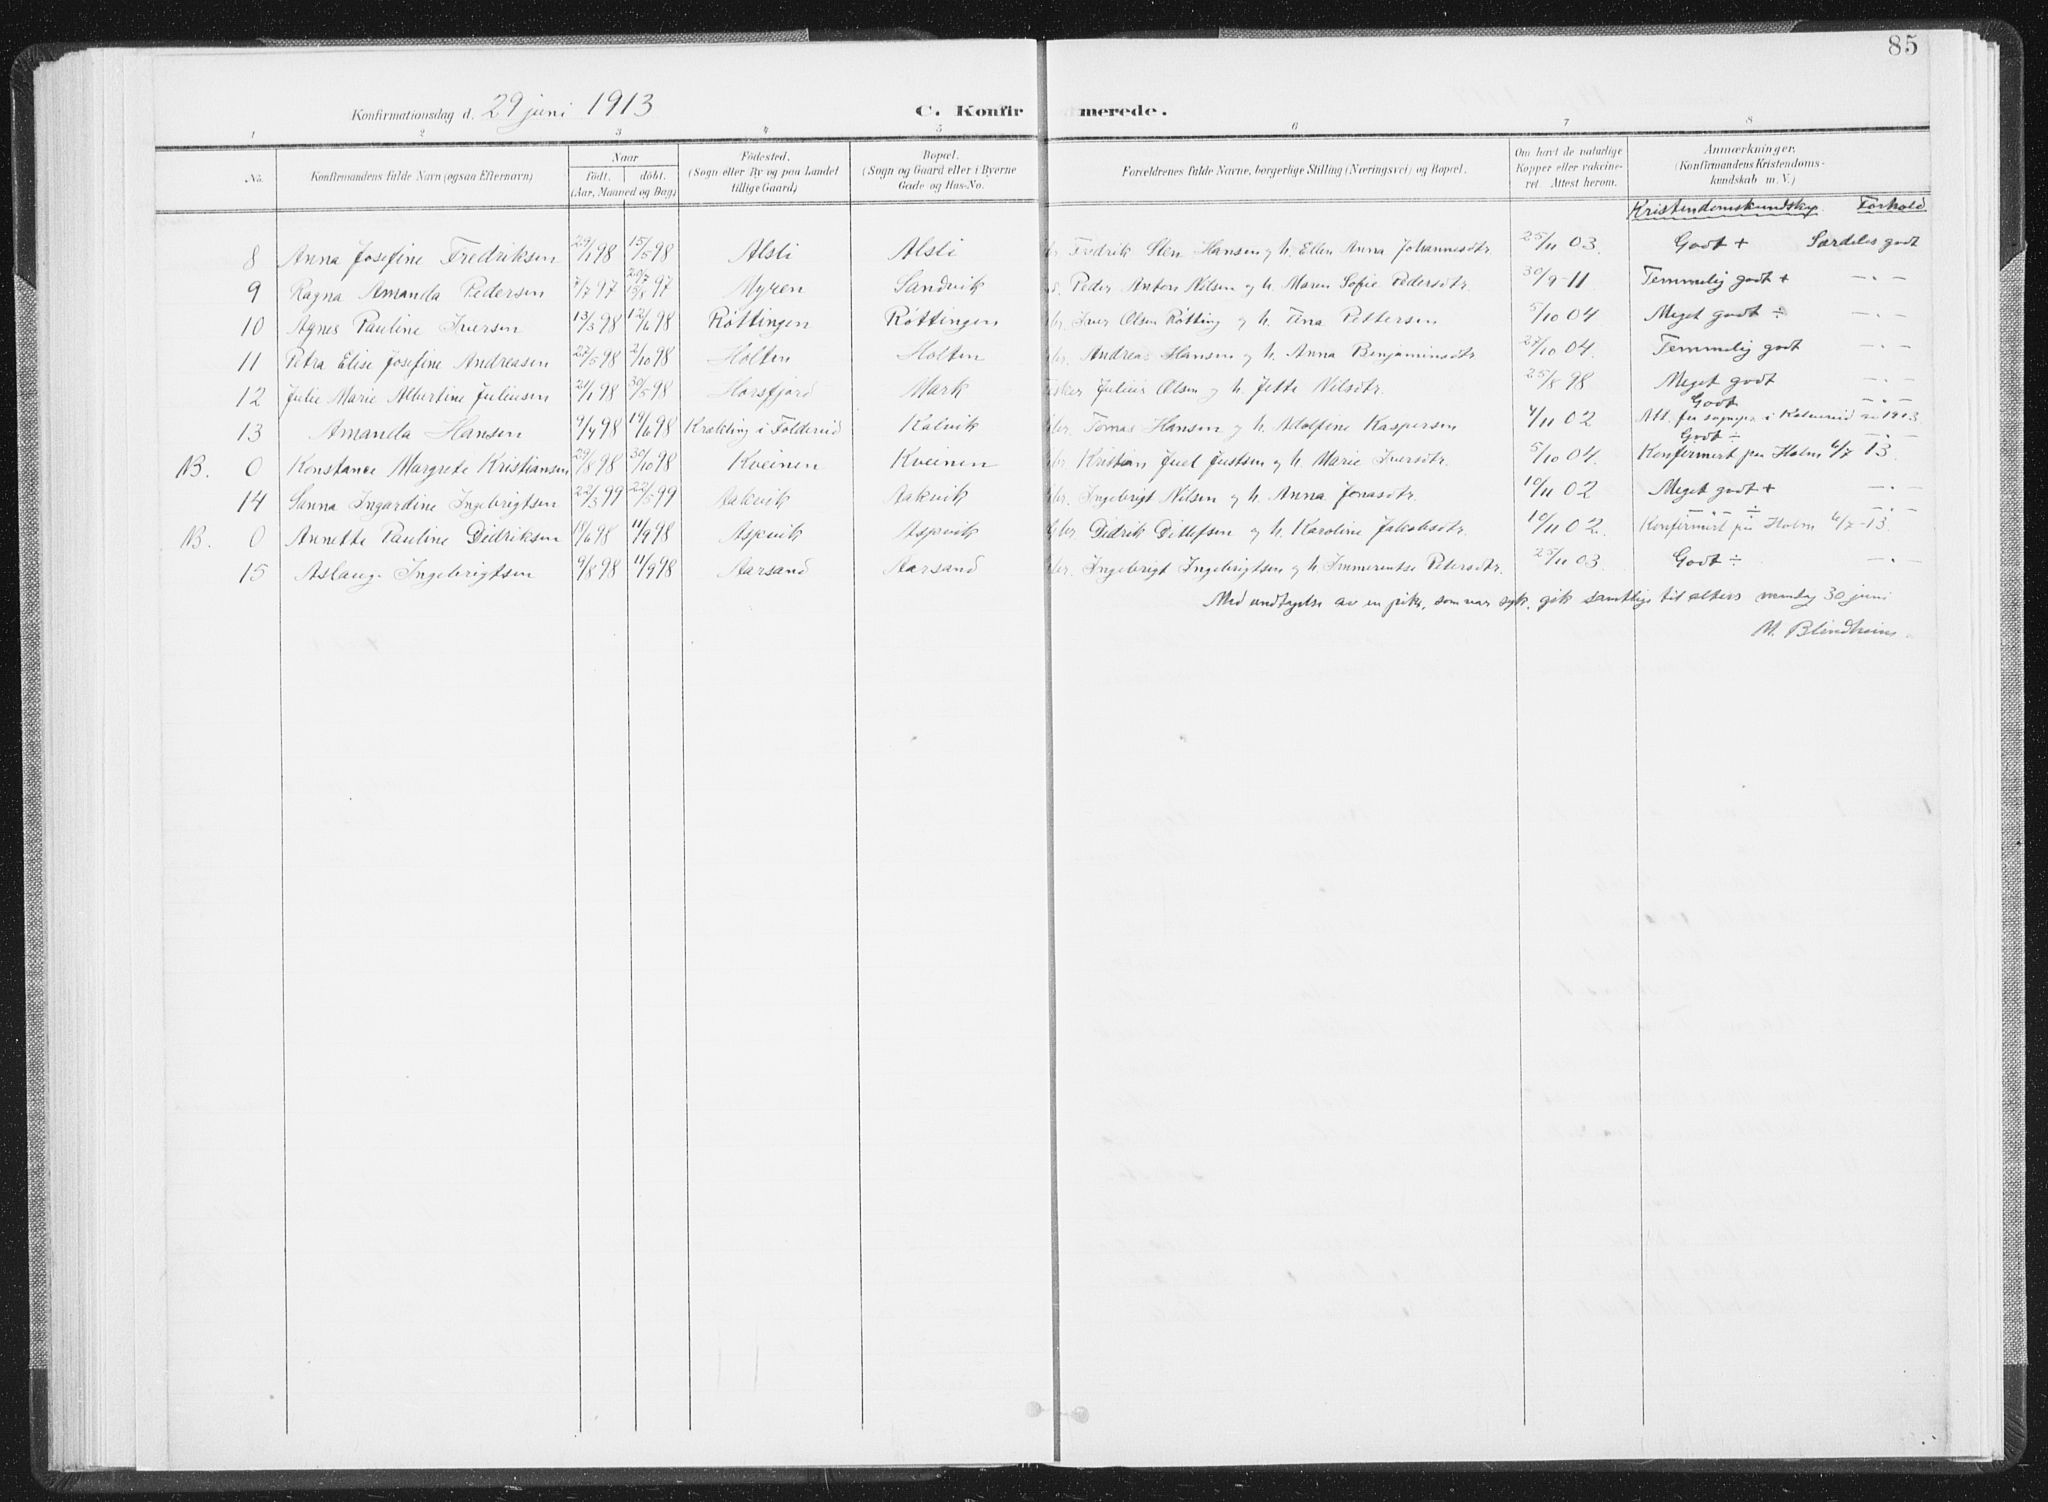 85
Konfirmationsdag d. 29 juni 1913 C. Konfirmerede.
1 2 3 4 5 6 7 8
No. Konfirmandens fulde Navn (ogsaa Efternavn) Naar født. døbt. (Aar, Maaned og Dag) Fødested. (Sogn eller By og paa Landet tillige Gaard) Bopæl. (Sogn og Gaard eller i Byerne Gade og Hus-No. Forældrenes fulde Navne, borgerlige Stilling (Næringsvei) og Bopæl. Om havt de naturlige Kopper eller vakcineret. Attest herom. Anmærkninger. (Konfirmandens Kristendomskundskab m. V.)
Kristendomskundskap Forhold
8 Anna Josefine Fredriksen 29/1 98 15/5 98 Alsli Alsli Fredrik Sten Hansen og h. Ellen Anna Johannesdtr. 25/11 03. Godt + Særdeles godt
9 Ragna Amanda Pedersen 7/7 97 20/7 15/8 97 Myren Sandvik Peder Anton Nilsen og h. Maren Sofie Pedersdtr. 30/9-11 Temmelig godt + —„—
10 Agnes Pauline Iversen 13/3 98 12/6 98 Røttingen Røttingen Iver Olsen Røtting og h. Tina Pettersen 5/10 04. Meget godt ÷ —„—
11 Petra Elise Josefine Andreasen 27/5 98 2/10 98 Holten Holten Andreas Hansen og h. Anna Benjaminsdtr. 27/10 04. Temmelig godt —„—
12 Julie Marie Albertine Juliusen 21/1 98 30/5 98 Horsfjord Mark Fisker Julius Olsen og h. Jette Nilsdtr. 25/8 98 Meget godt —„—
Godt —„—
13 Amanda Hansen 9/4 98 19/6 98 Krækling i Foldereid Kalvik Tomas Hansen og h. Adolfine Kaspersen 4/11 02 Att. fra sognepr. i Kolvereid 1913
Godt ÷ —„—
NB. 0 Konstance Margrete Kristiansen 29/8 98 30/10 98 Kveinen Kveinen Kristian Juel Justsen og h. Marie Iversdtr. 5/10 04. Konfirmert paa Holm 6/7 13.
14 Sanna Ingardine Ingebrigtsen 22/3 99 22/5 99 Aakvik Aakvik Ingebrigt Nilsen og h. Anna Jonasdtr. 10/11 02 Meget godt + —„—
—„— ÷ —„—
NB. 0 Annette Pauline Didriksen 18/6 98 11/9 98 Aspvik Aspvik Didrik Ditlefsen og h. Karoline Jakobsdtr. 10/11 02. Konfirmert paa Holm 6/7-13.
15 Aslaug Ingebrigtsen 9/8 98 11/9 98 Aarsand Aarsand Ingebrigt Ingebrigtsen og h. Immerentse Petersdtr. 25/11 03. Godt ÷ —„—
Med undtagelse av en pike, som var syk, gik samtlige til alters mandag 30 juni
M. Blindheim.